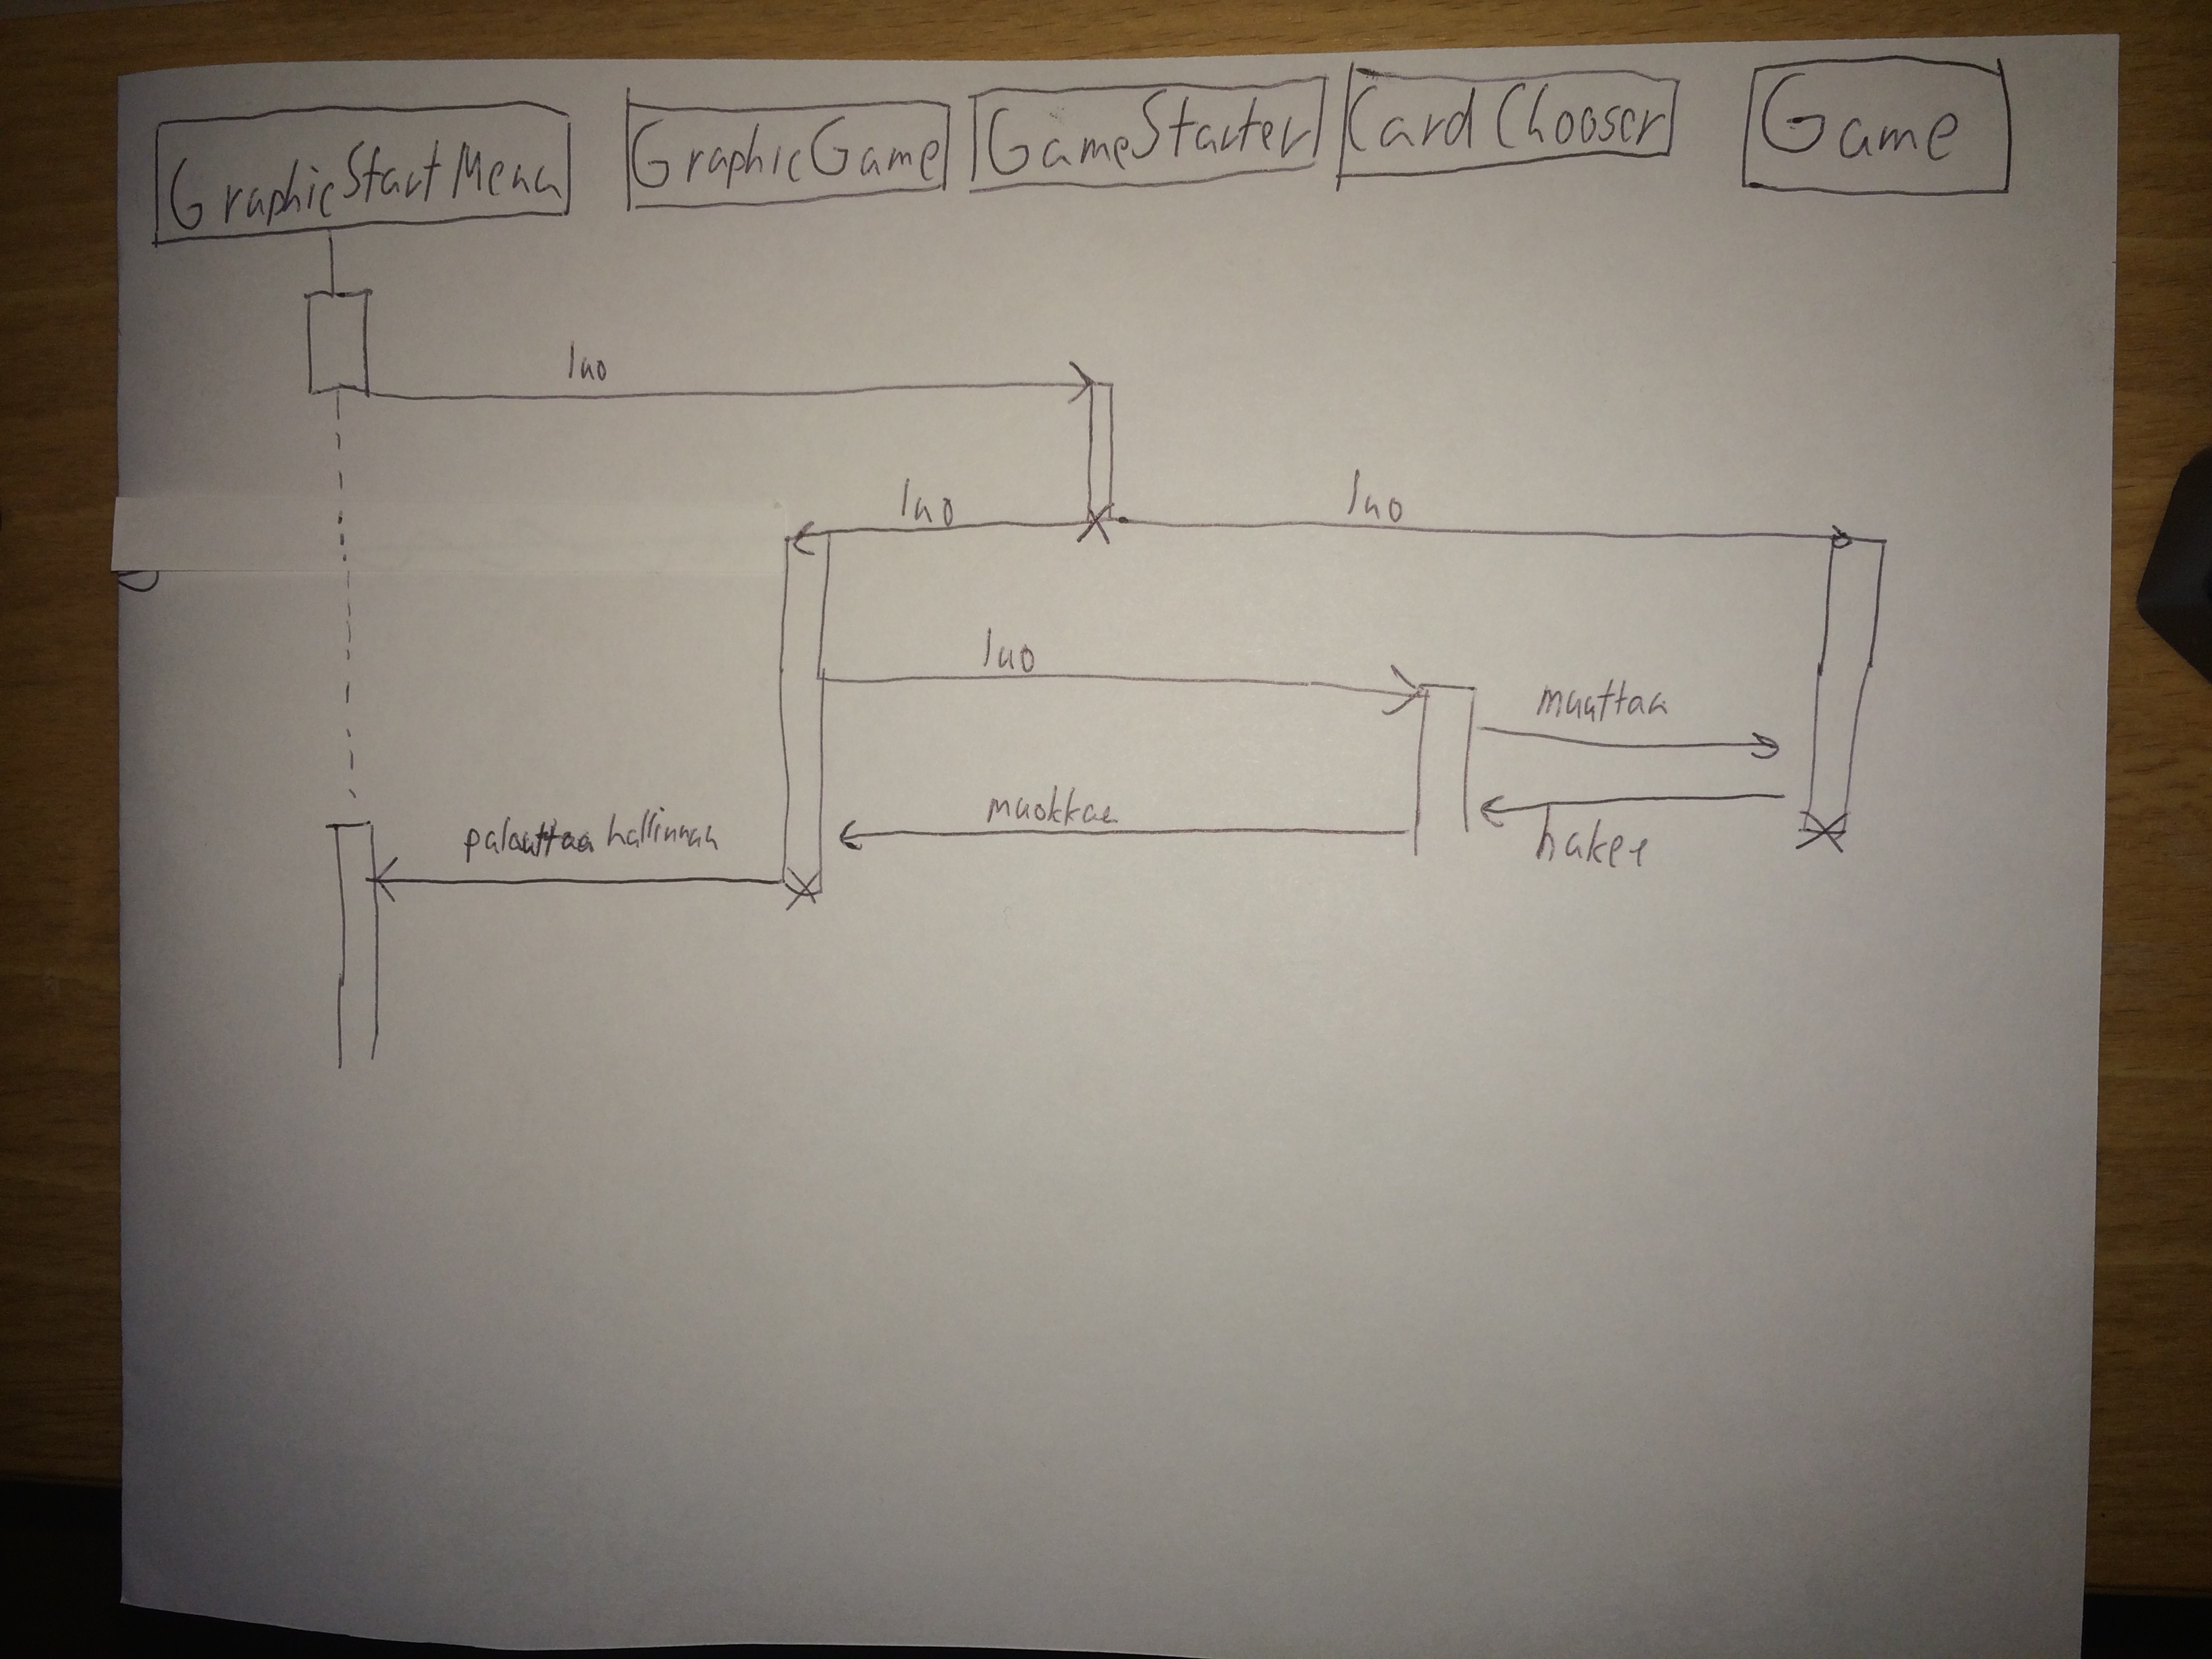 GraphicStartMenu
GraphicGame
GameStarter
CardChooser
Game
luo
luo
luo
luo
muuttaa
muokkaa
hakee
palauttaa hallinnan